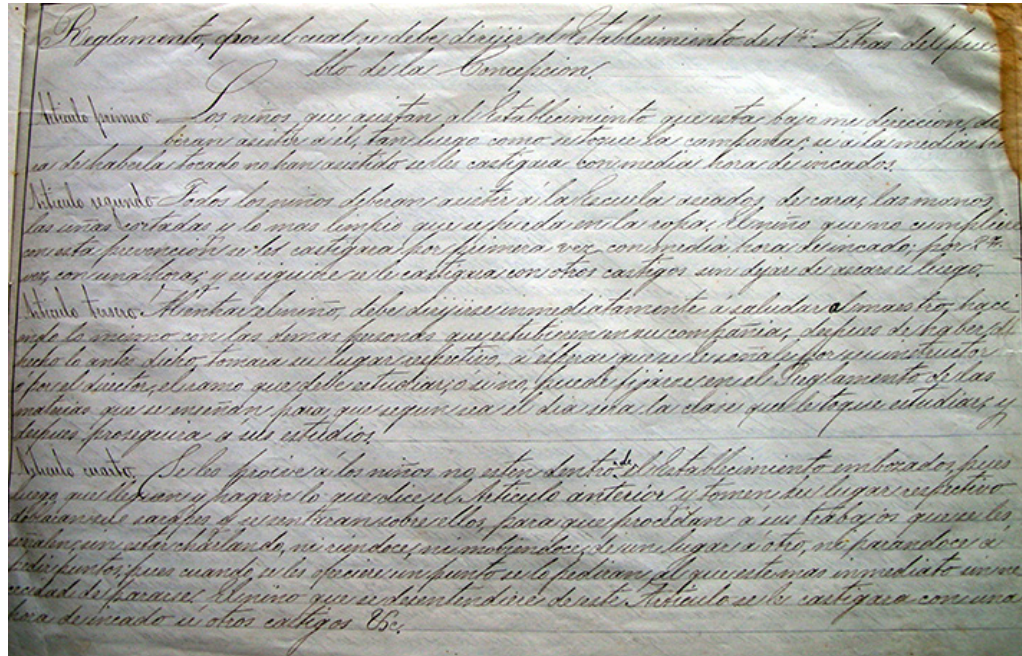 Reglamento, por el cual se debe dirijir el Establecimiento de 1as Letras del Pue
blo de la Concepcion.
Articulo primero Los niños que asistan al Establecimiento que esta bajo me direccion, de
beran asistir a él, tan luego como se toque la campana; si á la media ho
ra de haberla tocado no han asistido se les castigara con media hora de incados.
Articulo segundo Todos los niños deberan asistir á la Escuela aseados, de cara, las manos,
las uñas cortadas y lo mas limpio que se pueda en la ropa. El niño que no cumpliere
con esta prevencion se les castigara por primera vez, con media hora de incado; por 2da
vez, con una hora; y si siguiere se le castigara con otros castigos sin dejar de asearse luego.
Articulo tersero Al entrar el niño, debe dirijirse inmediatamente a saludar al maestro, haci
endo lo mismo con las demas personas que estubieren en su compañia, despues de haber
hecho lo antes dicho, tomara su lugar respectivo, a esperar que se le señale por su instructor
o por el director, el ramo que debe estudiar, o si no, puede fijarse en el Reglamento de las
materias que se enseñan para, que segun sea el dia sera la clase que le toque estudiar; y
despues proseguira a sus estudios.
Articulo cuarto. Se les proive á los niños no esten dentro de el Establecimiento embozados, pues
luego que lleguen y hagan lo que dice el Articulo anterior y tomen su lugar respectivo
doblaran sus sarapes y se sentaran sobre ellos, para que procedan a sus trabajos que se les
señalen, sin estar charlando, ni riendoce, ni mobiendoce, de un lugar a otro, ni parandoce a
pedir puntos, pues cuando se les ofreciere un punto se le pediran al que este mas inmediato sin ne
cecidad de pararse. El nino que se desentendiere de este Articulo se le castigara con una
hora de incado ú otros castigos &c.